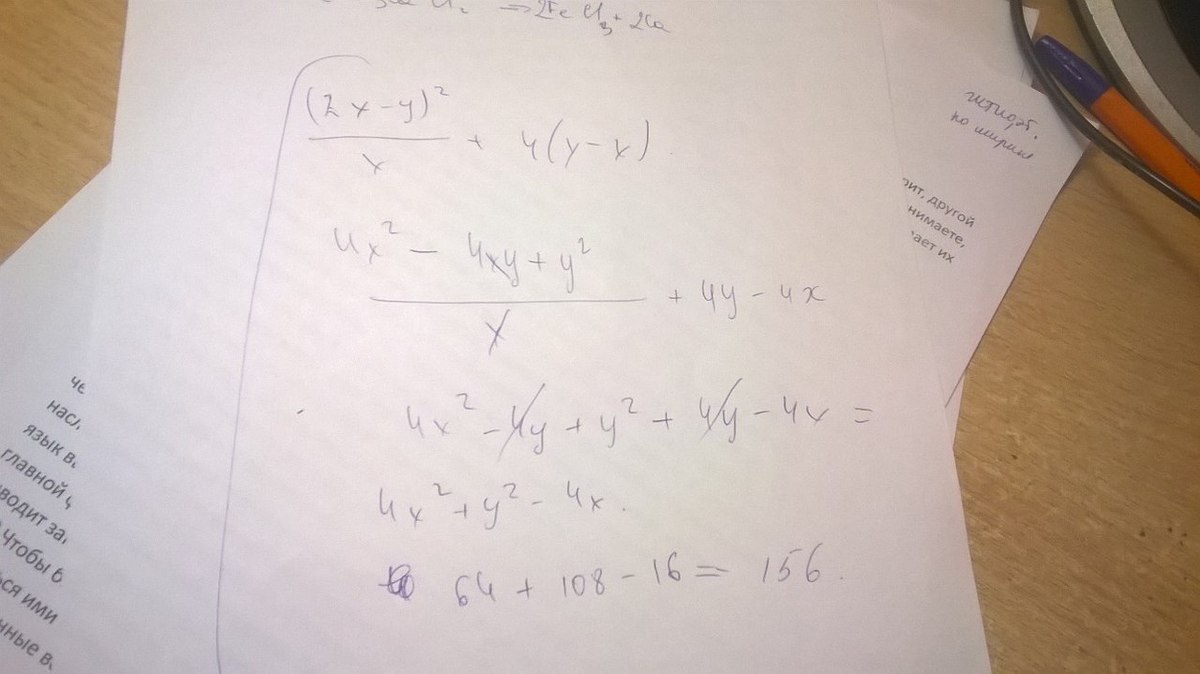 ⇒ 2FeCl₃ + 2Ca
(2x-y)²/x + 4(y-x)
(4x² - 4xy + y²)/x + 4y - 4x
4x² - 4y + y² + 4y - 4x =
4x² + y² - 4x.
64 + 108 - 16 = 156.
по ширине
рит, другой
нимаете,
ает их
че
нас
язык в
главной
водит за
Чтобы б
ся ими
нные в